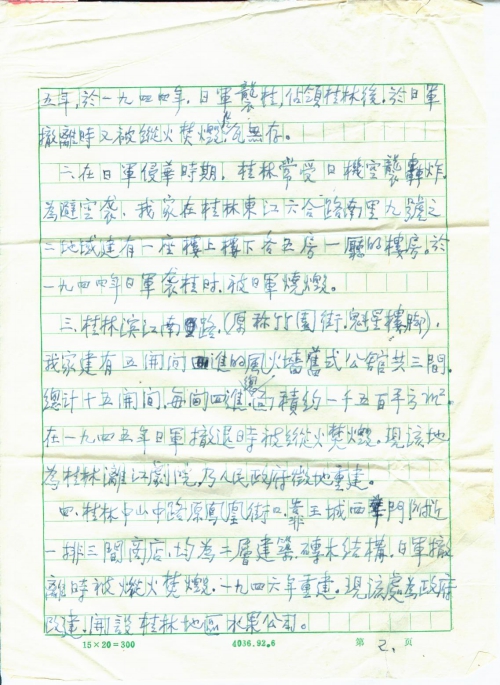 五年，於一九四四年，日軍襲桂，佔領桂林後，於日軍
撤離時又被縱火焚燬，片瓦無存。
二、在日軍侵華時期，桂林常受日機空襲轟炸，
為避空袭，我家在桂林東江六合路南里九號之
三地域建有一座樓上樓下各五房一廳的樓房。於
一九四四年日軍袭桂时，被日軍燒燬。
三、桂林滨江南路，(原称竹园街，魁星樓脚)，
我家建有五開间四進的風火墙舊式公舘共三間，
總计十五開间，每间四進，總面積约一千五百平方m²。
在一九四五年日軍撤退時被縱火焚燬，現該地
為桂林漓江劇院，乃人民政府徴地重建。
四、桂林中山中路原鳳凰街口，靠王城西華門附近
一排三間商店，均為二層建築，磚木结構，日軍撤
離時被縱火焚燬，一九四六年重建，現該處為政府
改建，開設桂林地區水果公司。
15×20=300 4036.92.6 第 2. 页